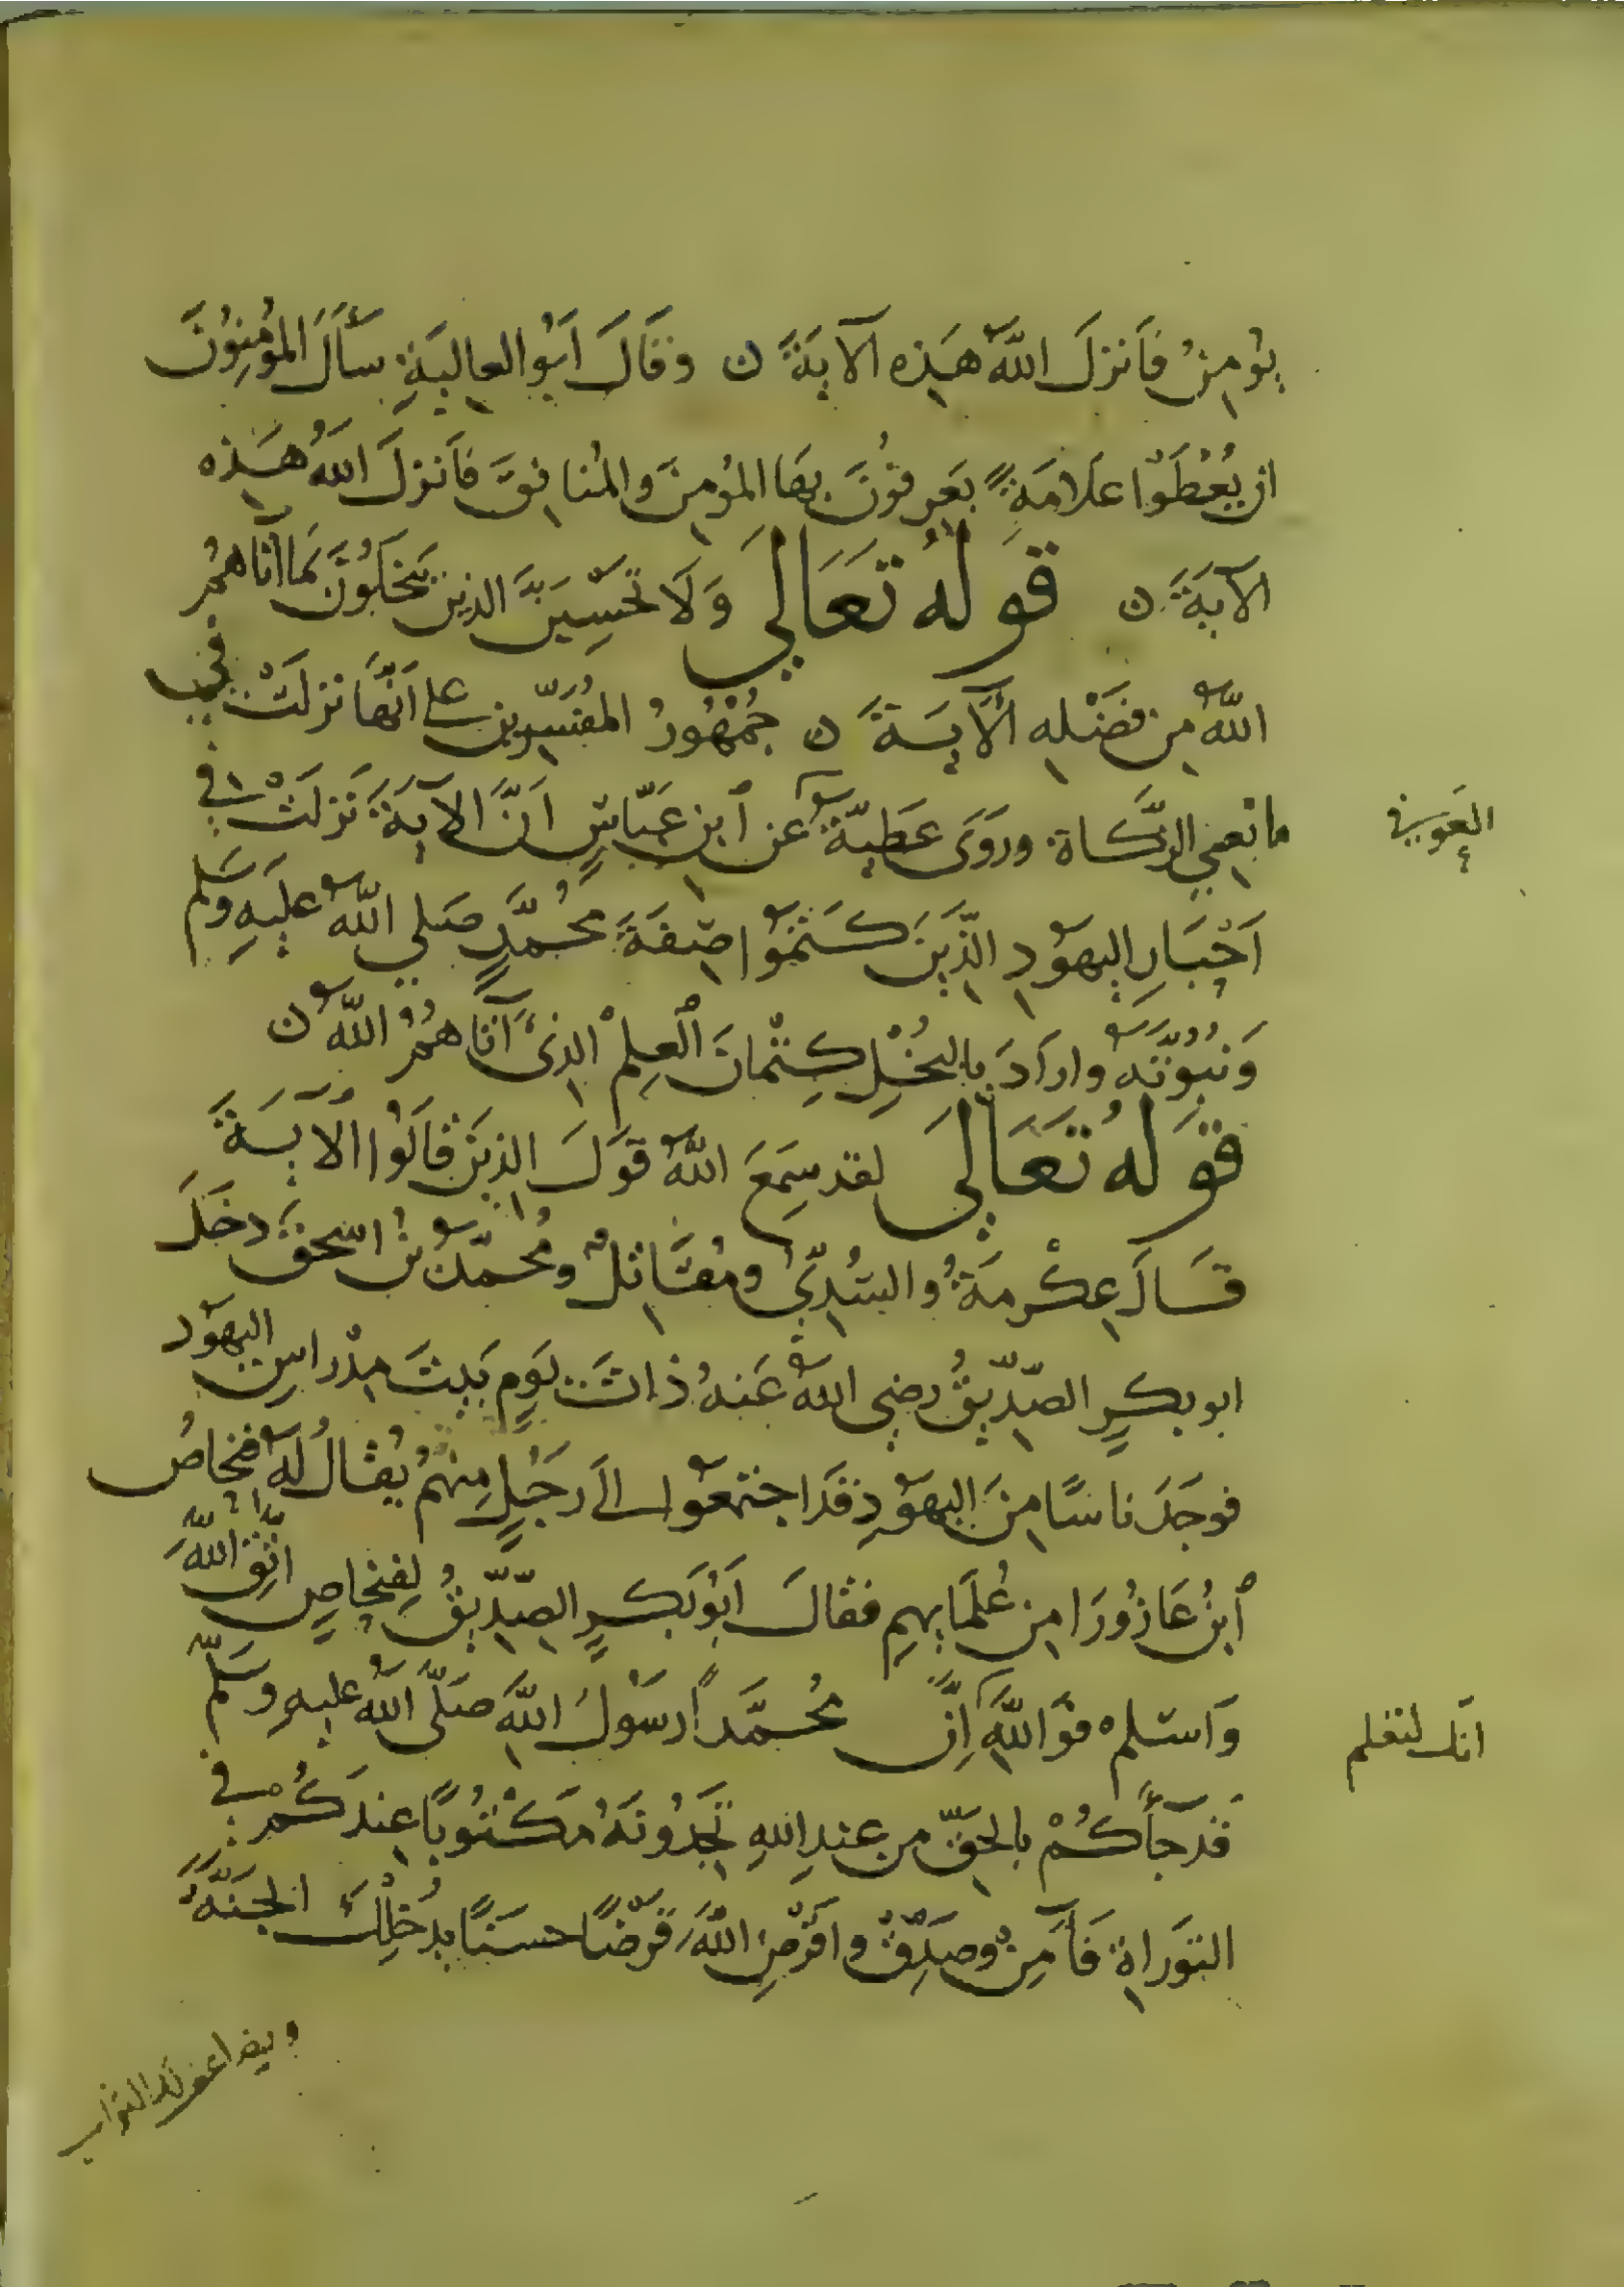 يُؤمِنُ فَأنزلَ اللهُ هَذِه الآيَةَ ن وقَالَ أبُو العاليَةِ سَأَلَ المُؤمِنُونَ
ان يُعْطَوْا عَلامَةً يَعرفُونَ بها المؤمِنَ والمُنافِقَ فَأنزلَ اللهُ هَذِه
الآيَةَ ن قَولُهُ تَعَالَى وَلَا تَحْسِبَنَّ الذين يَبخَلُونَ بمَا آتاهُمُ
اللهُ مِن فَضْلِهِ الآيَةَ ن جُمْهُورُ المفُسّرين على أنَّهَا نزلَتْ في
مانعِي الزَّكاة ورَوَى عَطيّةُ عن ٱبنِ عَبّاسٍ انَّ الآيَةَ نَزلَتْ في
العَوفي
أحْبَارِ اليهُودِ الّذِينَ كَتَمُوا صِفَةَ مُحُمَّدٍ صَلى اللهُ عَليهِ وسَلم
وَنُبُوَّتَهُ وارادَ بالبُخْلِ كِتْمانَ العِلمْ الذى آتاهُمُ اللهُ ن
قَولُهُ تَعَالَى لقد سَمِعَ اللهُ قَولَ الذينَ قَالُوا الآيَةَ
قَالَ عِكْرمَةُ والسُّدِّىُّ ومُقَاتلٌ ومُحمّدُ بنُ اسْحقَ دخَلَ
ابو بكرٍ الصّدّيقُ رضي اللهُ عَنهُ ذاتَ يَومٍ بَيتَ مِدْراسِ اليهُود
فوجَدَ ناسًا مِنَ اليَهُودِ قَد اجتمعُوا الَى رجُلٍ مِنهُم يُقالُ لَهُ فِنحَاصُ
ٱبنُ عَازُورَا مِن عُلَمَايهِم فقَالَ أبُو بَكرٍ الصِّدّيقُ لِفنحَاصٍ اتَّقِ اللهَ
وَاسلم فوَاللهِ إنَّ مُحُمَّداً رسُولُ اللهِ صَلّى اللهُ عَليهِ وسَلّم
انك لتعلم
قَد جَآءكُمْ بالحَقِّ مِن عندِ اللهِ تَجِدُونَهُ مَكْتُوبًا عِندكُم في
التَورَاةِ فَآمِنْ وصَدِّقْ واقرْضِ اللهَ قَرضًا حسَنًا يُدخِلْكَ الجَنَّةَ